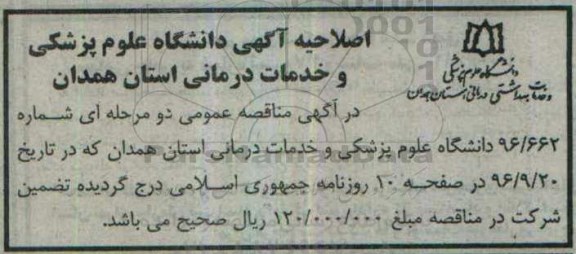 اصلاحیه آگهی دانشگاه علوم پزشکی
و خدمات درمانی استان همدان
دانشگاه علوم پزشکی
و خدمات بهداشتی درمانی استان همدان
در آگهی مناقصه عمومی دو مرحله ای شماره
۹۶/۶۶۲ دانشگاه علوم پزشکی و خدمات درمانی استان همدان که در تاریخ
۹۶/۹/۲۰ در صفحه ۱۰ روزنامه جمهوری اسلامی درج گردیده تضمین
شرکت در مناقصه مبلغ ۱۲۰/۰۰۰/۰۰۰ ریال صحیح می باشد.